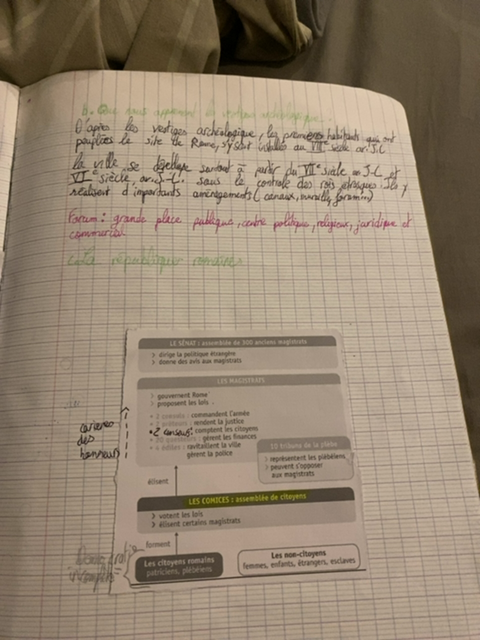 b. Que nous apprennent les vestiges archéologiques.
D'après les vestiges archéologique, les premiers habitants qui ont
peuplées le site de Rome, s'y sont installés au VIIIe siècle av. J.C
la ville se développe surtout à partir du VIIe siècle av. J-C et
VIe siècle av. J-C, sous le contrôle des rois étrusques. Ils y
réalisent d'importants aménagements (canaux, muraille, forum)
Forum : grande place publique, centre politique, religieux, juridique et
commercial
république romaine
LE SÉNAT : assemblée de 300 anciens magistrats
> dirige la politique étrangère
> donne des avis aux magistrats
LES MAGISTRATS
> gouvernent Rome
> proposent les lois
• 2 consuls : commandent l'armée
• préteurs : rendent la justice
• 2 censeurs : comptent les citoyens
• 20 questeurs : gèrent les finances
• 4 édiles : ravitaillent la ville
gèrent la police
carrière
des
honneurs
10 tribuns de la plèbe
> représentent les plébéiens
> peuvent s'opposer
aux magistrats
élisent
LES COMICES : assemblée de citoyens
> votent les lois
> élisent certains magistrats
forment
Les citoyens romains
patriciens, plébéiens
Les non-citoyens
femmes, enfants, étrangers, esclaves